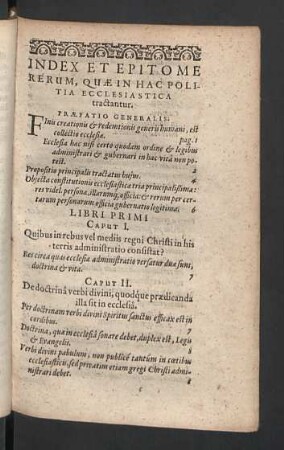 INDEX ET EPITOME
RERUM, QUÆ IN HAC POLI-
TIA ECCLESIASTICA
tractantur.
PRÆFATIO GENERALIS.
FInis creationis & redemtionis generis humani, est
collectio ecclesiæ. pag. 1
Ecclesia hac nisi certo quodam ordine & legibus
administrari & gubernari in hac vita non po-
test. 2
Propositio principalis tractatus hujus. 4
Objecta constitutionis ecclesiasticæ tria principalissima:
res videl. personæ, illarumq́; officia; & rerum per cer-
tarum personarum officia gubernatio legitima. 6
LIBRI PRIMI
CAPUT I.
Quibus in rebus vel mediis regni Christi in his
terris administratio consistat?
Res circa quas ecclesiæ administratio versatur duæ sunt,
doctrina & vita. 7
CAPUT II.
De doctrinâ verbi divini, quodque prædicanda
illa sit in ecclesiâ.
Per doctrinam verbi divini Spiritus sanctus efficax est in
cordibus. 7
Doctrina, quæ in ecclesiâ sonare debet, duplex est, Legis
& Evangelii. 7
Verbi divini pabulum, non publicè tantùm in cœtibus
ecclesiasticis, sed privatim etiam gregi Christi admi-
nistrari debet.